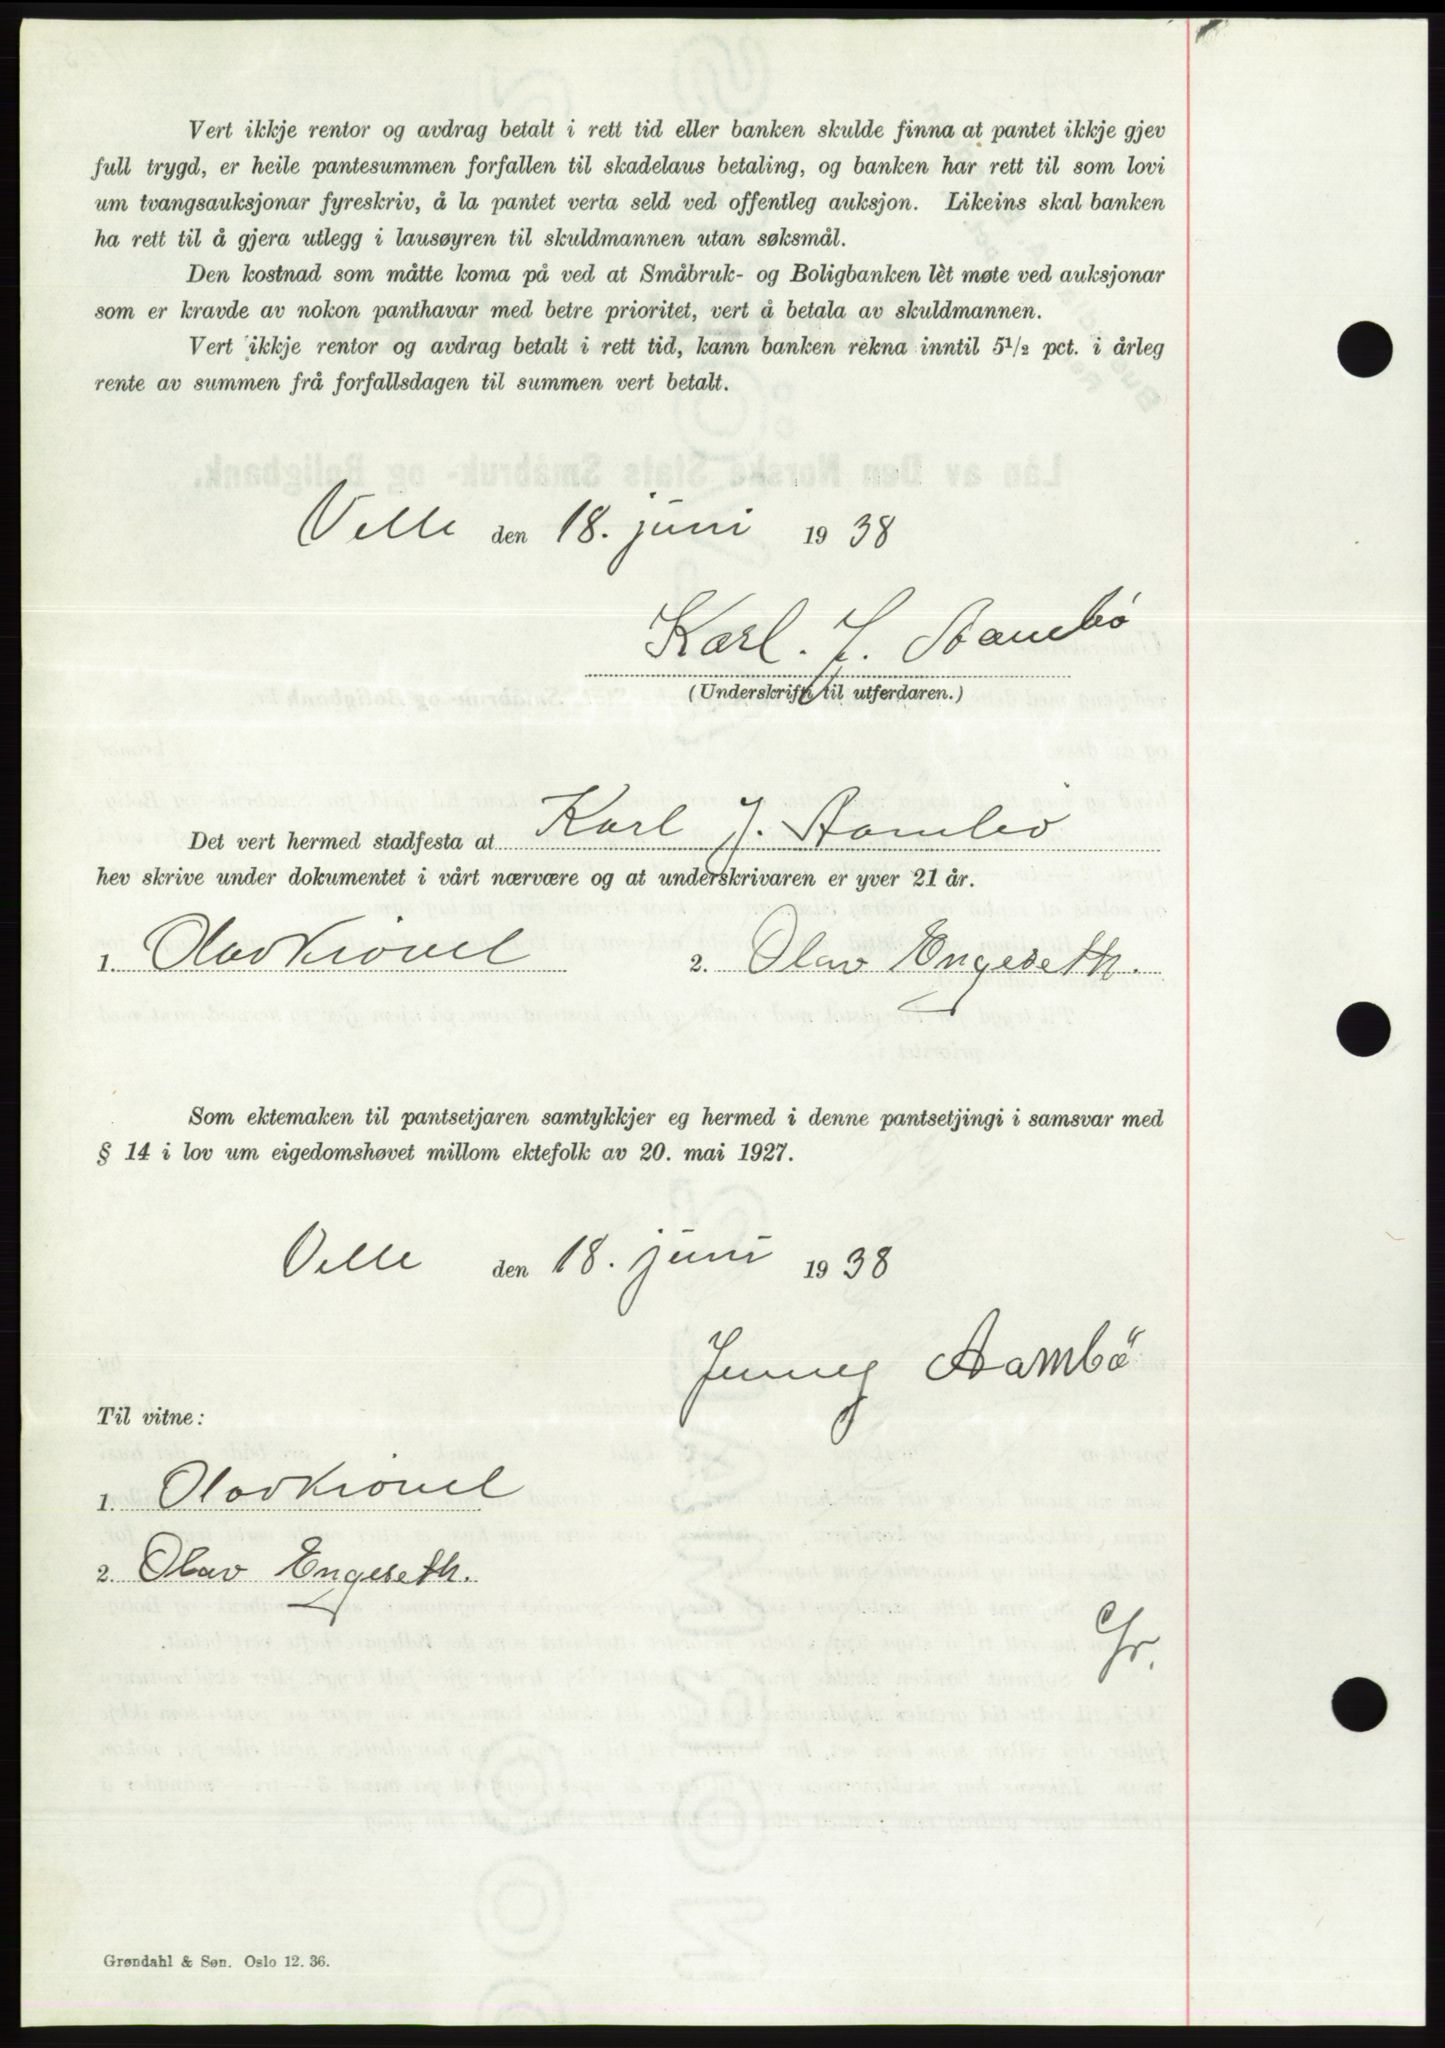 Vert ikkje rentor og avdrag betalt i rett tid eller banken skulde finna at pantet ikkje gjev
full trygd, er heile pantesummen forfallen til skadelaus betaling, og banken har rett til som lovi
um tvangsauksjonar fyreskriv, å la pantet verta seld ved offentleg auksjon. Likeins skal banken
ha rett til å gjera utlegg i lausøyren til skuldmannen utan søksmål.
Den kostnad som måtte koma på ved at Småbruk- og Boligbanken lèt møte ved auksjonar
som er kravde av nokon panthavar med betre prioritet, vert å betala av skuldmannen.
Vert ikkje rentor og avdrag betalt i rett tid, kann banken rekna inntil 5 1/2 pct. i årleg
rente av summen frå forfallsdagen til summen vert betalt.
Velle den 18. juni 1938
Karl. J. Aambö
(Underskrift til utferdaren.)
Det vert hermed stadfesta at Karl J. Aambö
hev skrive under dokumentet i vårt nærvære og at underskrivaren er yver 21 år.
1. Olav 2. Olav Engeseth.
Som ektemaken til pantsetjaren samtykkjer eg hermed i denne pantsetjingi i samsvar med
§ 14 i lov um eigedomshøvet millom ektefolk av 20. mai 1927.
Velle den 18. juni 1938
Jenny Aambö
Til vitne:
1. Olav
2. Olav Engeseth.
Grøndahl & Søn. Oslo 12. 36.